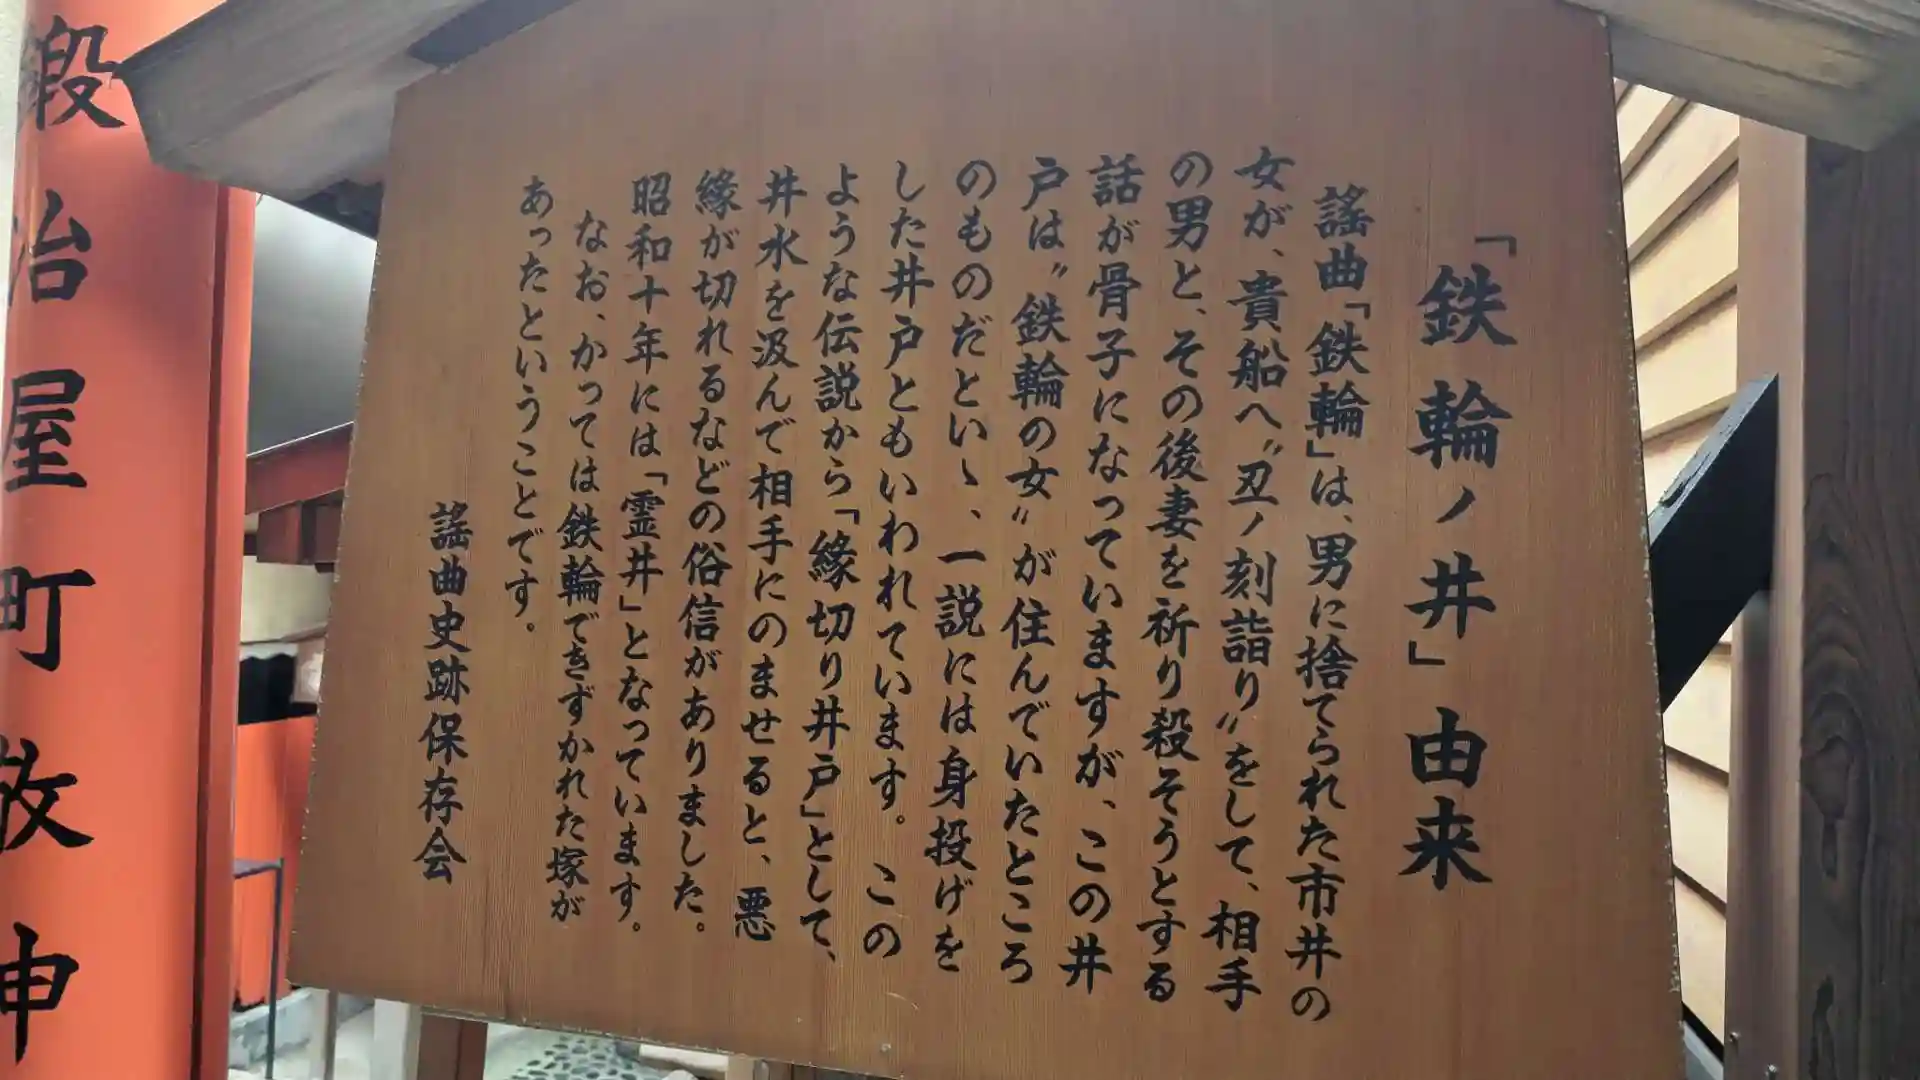 「鉄輪ノ井」由来
謡曲「鉄輪」は、男に捨てられた市井の
女が、貴船へ〝丑ノ刻詣り〟をして、相手
の男と、その後妻を祈り殺そうとする
話が骨子になっていますが、この井
戸は〝鉄輪の女〟が住んでいたところ
のものだといゝ、一説には身投げを
した井戸ともいわれています。この
ような伝説から「縁切り井戸」として、
井水を汲んで相手にのませると、悪
縁が切れるなどの俗信がありました。
昭和十年には「霊井」となっています。
なお、かっては鉄輪できずかれた塚が
あったということです。
謡曲史跡保存会
鍛冶屋町敬神